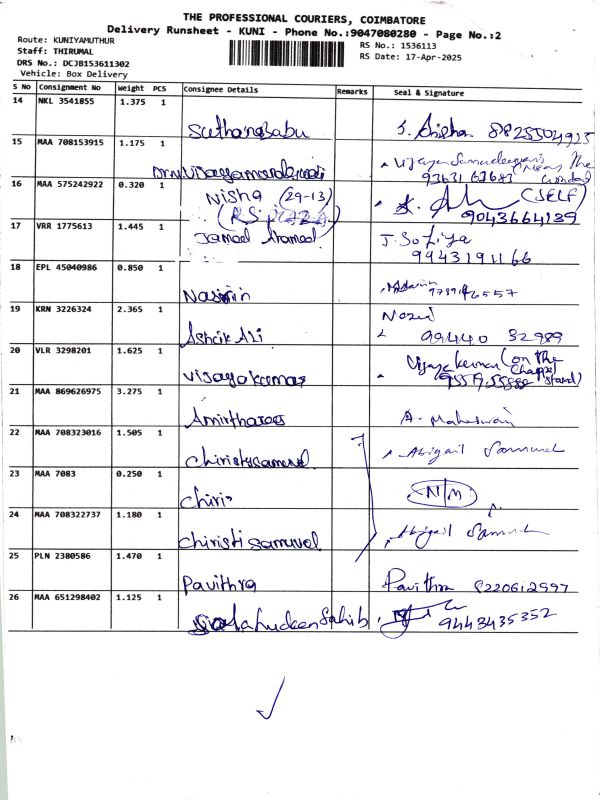 THE PROFESSIONAL COURIERS, COIMBATORE
Delivery Runsheet - KUNI - Phone No.:9047080280 - Page No.:2
Route: KUNIYAMUTHUR
RS No.: 1536113
Staff: THIRUMAL
RS Date: 17-Apr-2025
DRS No.: DCJB153611302
Vehicle: Box Delivery
S No Consignment No Weight PCS Consignee Details Remarks Seal & Signature
14 NKL 3541855 1.375 1
Suthansbabu
15 MAA 708153915 1.175 1
(Near The
16 MAA 575242922 0.320 1
Nisha (29-13) (SELF)
(RS plaza) 9043664139
17 VRR 1775613 1.445 1
Jameel Ahamed J. Sofiya
9943191166
18 EPL 45040986 0.850 1
Nasirin
19 KRN 3226324 2.365 1
Ashcik Ali 99440 32989
20 VLR 3298201 1.625 1
Vijayakumar Vijayakumar (on the
stand)
21 MAA 869626975 3.275 1
Amirtharaj A. Maheswari
22 MAA 708323016 1.505 1
Chiristysamuvel Abigail Samuel
23 MAA 7083 0.250 1
Chiris N/M
24 MAA 708322737 1.180 1
Chiristi samuvel Abigail Samuel
25 PLN 2380586 1.470 1
Pavithra Pavithra 8220612997
26 MAA 651298402 1.125 1
Sahib 9443435352